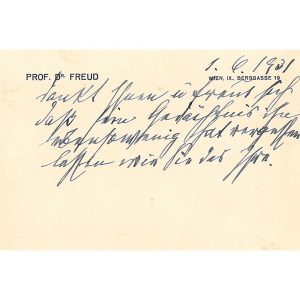 1. 6. 1931
PROF. Dr. FREUD
WIEN, IX., BERGGASSE 19
dankt Ihnen u freut sich
daß sein Gedächtnis ihn
ebensowenig hat vergessen
lassen wie Sie das Ihre.